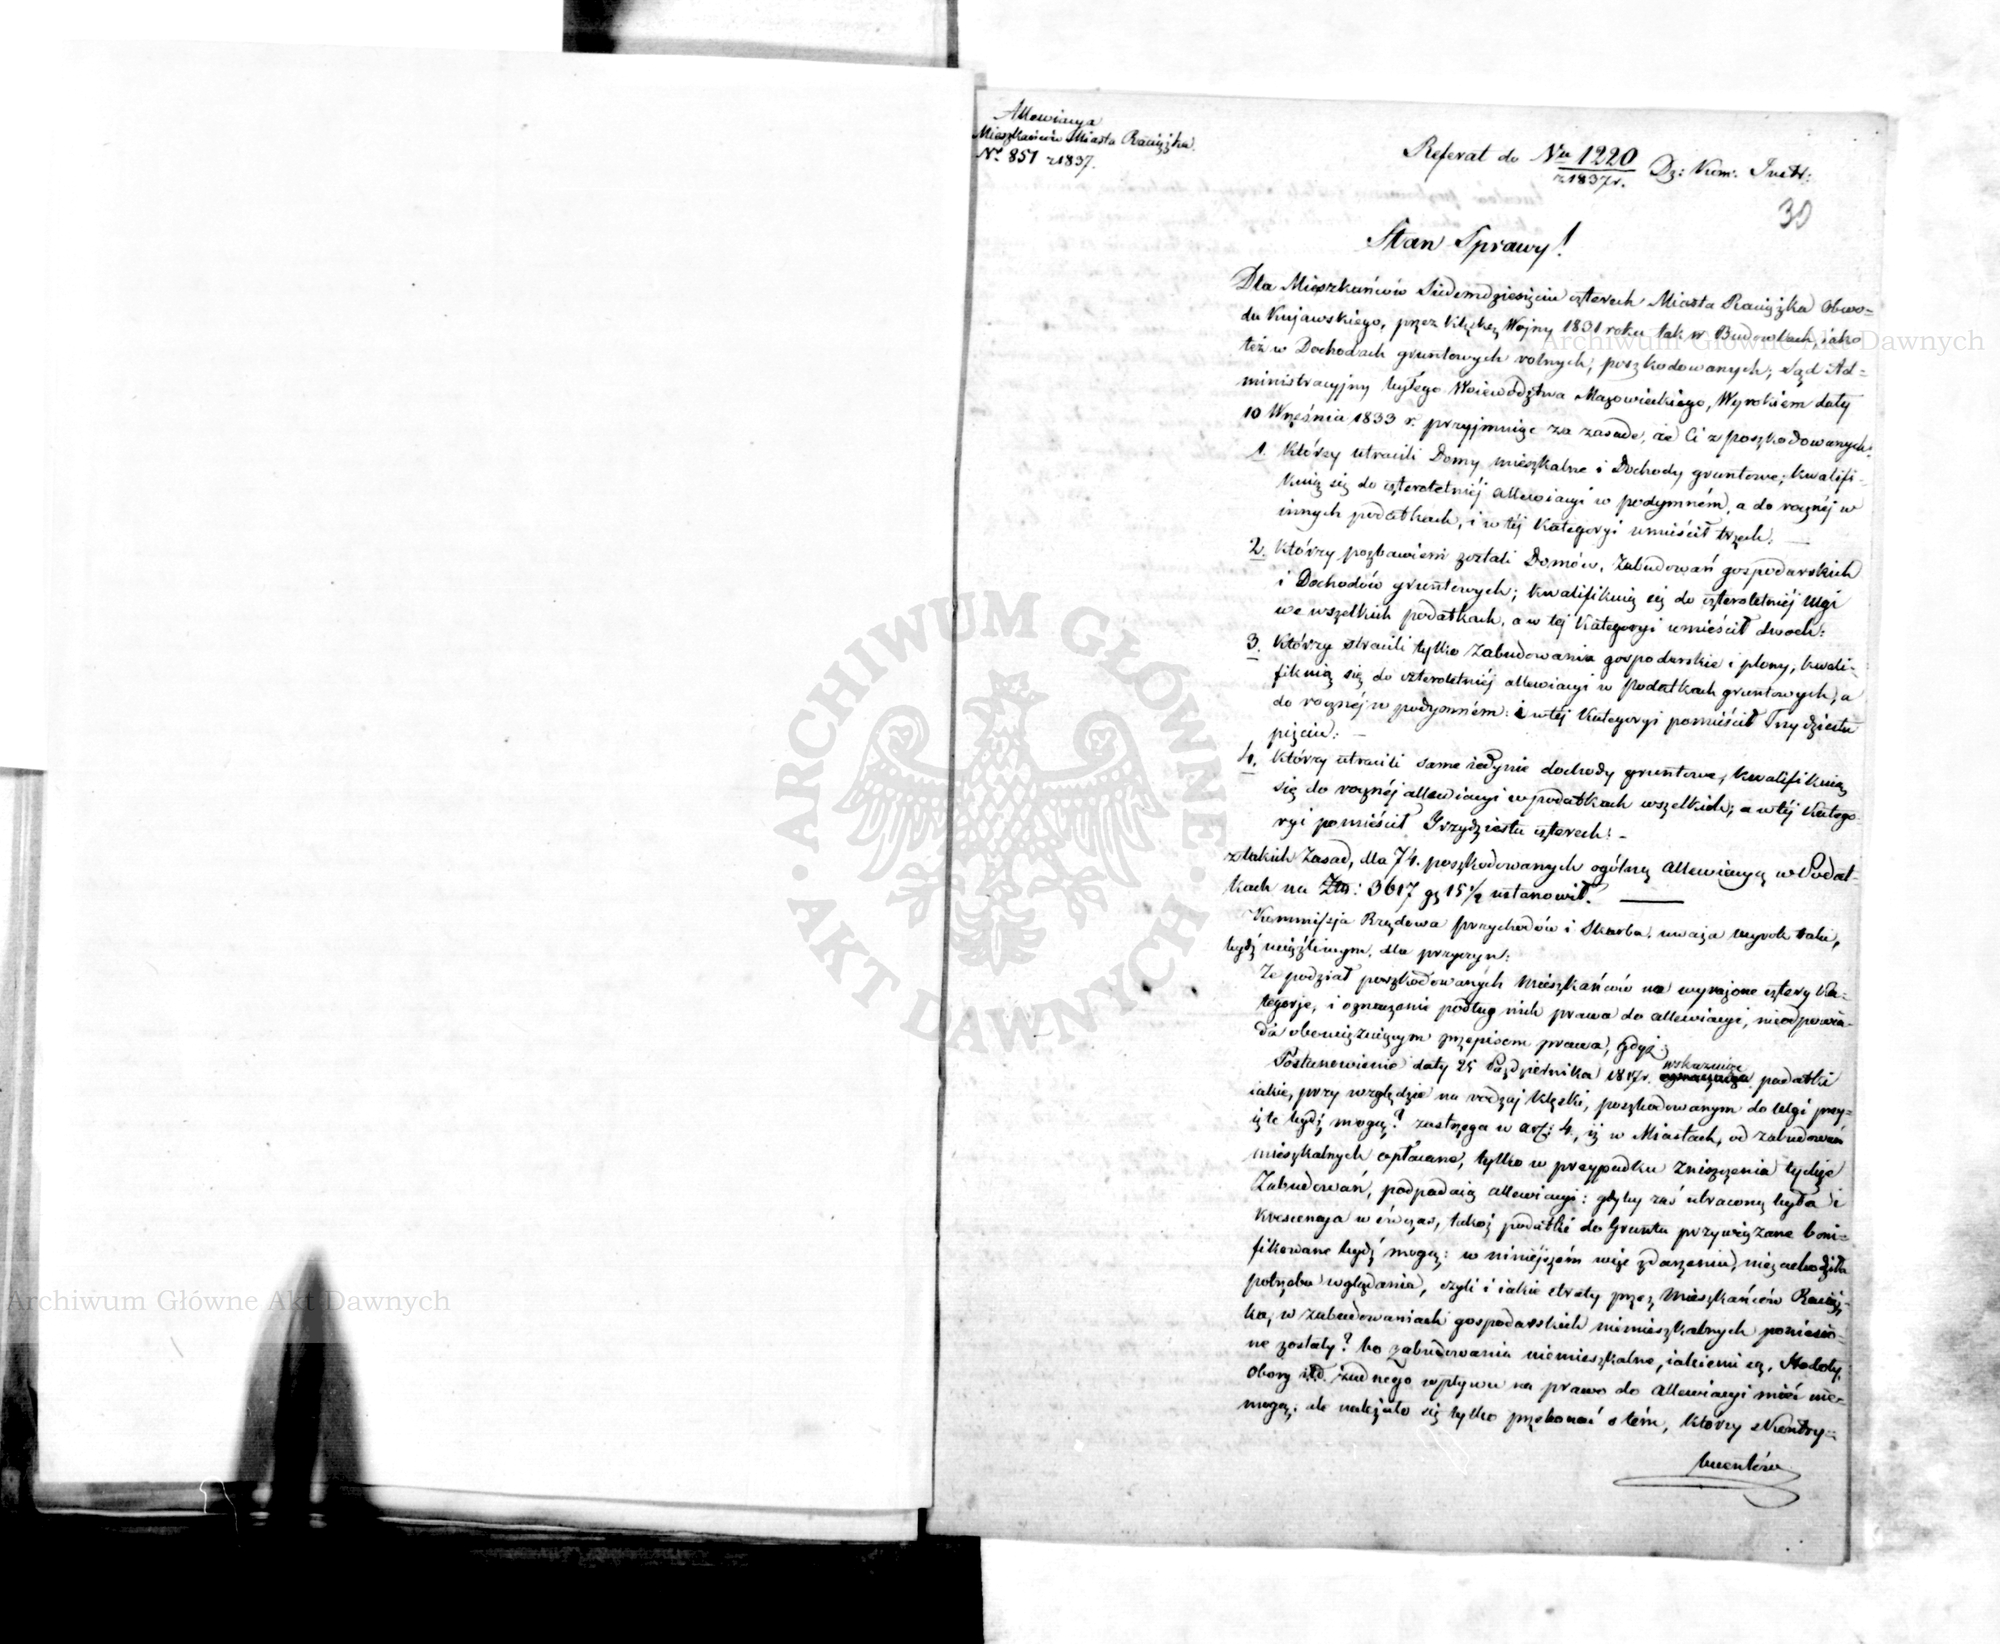 Allewiacya
Mieszkańców Miasta Raciążka.
Nr. 851 z 1837.
Referat do Nru 1220 Dz: Kom: Instr:
z 1837 r.
30
Stan Sprawy!
Dla Mieszkańców Siedmdziesięciu czterech Miasta Raciążka Obwo=
du Kujawskiego, przez klęskę Wojny 1831 roku tak w Budowlach iako
też w Dochodach gruntowych rolnych, poszkodowanych; Sąd Ad=
ministracyjny byłego Woiewództwa Mazowieckiego, Wyrokiem daty
10 Września 1833 r. przyjmuiąc za zasadę, że Ci z poszkodowanych:
1. Którzy utracili Domy mieszkalne i Dochody gruntowe, kwalifi=
kuią się do czteroletniéj allewiacyi w podymném, a do rocznéj w
innych podatkach, i w téj Kategoryi umieścił trzech: —
2. Którzy pozbawieni zostali Domów, Zabudowań gospodarskich
i Dochodów gruntowych; kwalifikuią się do czteroletniéj ulgi
we wszelkich podatkach, a w tej Kategoryi umieścił dwoch:
3. Którzy stracili tylko zabudowania gospodarskie i plony, kwali=
fikuią się do czteroletniéj allewiacyi w podatkach gruntowych, a
do rocznéj w podymném: i w téj Kategoryi pomieścił Trzydziestu
pięciu: —
4. Którzy utracili same iedynie dochody gruntowe, kwalifikuią
się do rocznéj allewiacyi w podatkach wszelkich; a w téj Katego=
ryi pomieścił Trzydziestu czterech: —
z takich Zasad, dla 74. poszkodowanych ogólną allewiacyą w Podat=
kach na Złp: 3617 gr 15 1/2 ustanowił. ——
Kommissja Rządowa przychodów i Skarbu, uważa wyrok taki,
bydź uciążliwym, dla przyczyn:
Że podział poszkodowanych Mieszkańców na wyrażone cztery Ka=
tegorje, i oznaczenie podług nich prawa do allewiacyi, nieodpowia=
da obowiązuiącym przepisom prawa, Gdyż:
Postanowienie daty 25 Października 1817 r. wskazuiąc podatki
iakie, przy względzie na rodzaj klęski, poszkodowanym do ulgi przy=
ięte bydź mogą? zastrzega w art: 4, iż w Miastach, od zabudowań
mieszkalnych opłacane, tylko w przypadku zniszczenia tychże
Zabudowań, podpadaią allewiacyi: gdyby zaś utraconą była i
Krescencya w ówczas, takoż podatki do Gruntu przywiązane boni=
fikowane bydź mogą: w niniéjszém więc zdarzeniu, niezachodziła
potrzeba wglądania, czyli i iakie straty przez Mieszkańców Raciąż=
ka, w zabudowaniach gospodarskich niemieszkalnych poniesio=
ne zostały? bo zabudowania niemieszkalne, iakiemi są, Stodoły,
Obory itd. żadnego wpływu na prawo do allewiacyi mieć nie=
mogą; ale należało się tylko przekonać o tém, którzy z Kontry=
buentów
Archiwum Główne Akt Dawnych
Archiwum Główne Akt Dawnych
ARCHIWUM GŁÓWNE
· AKT DAWNYCH ·